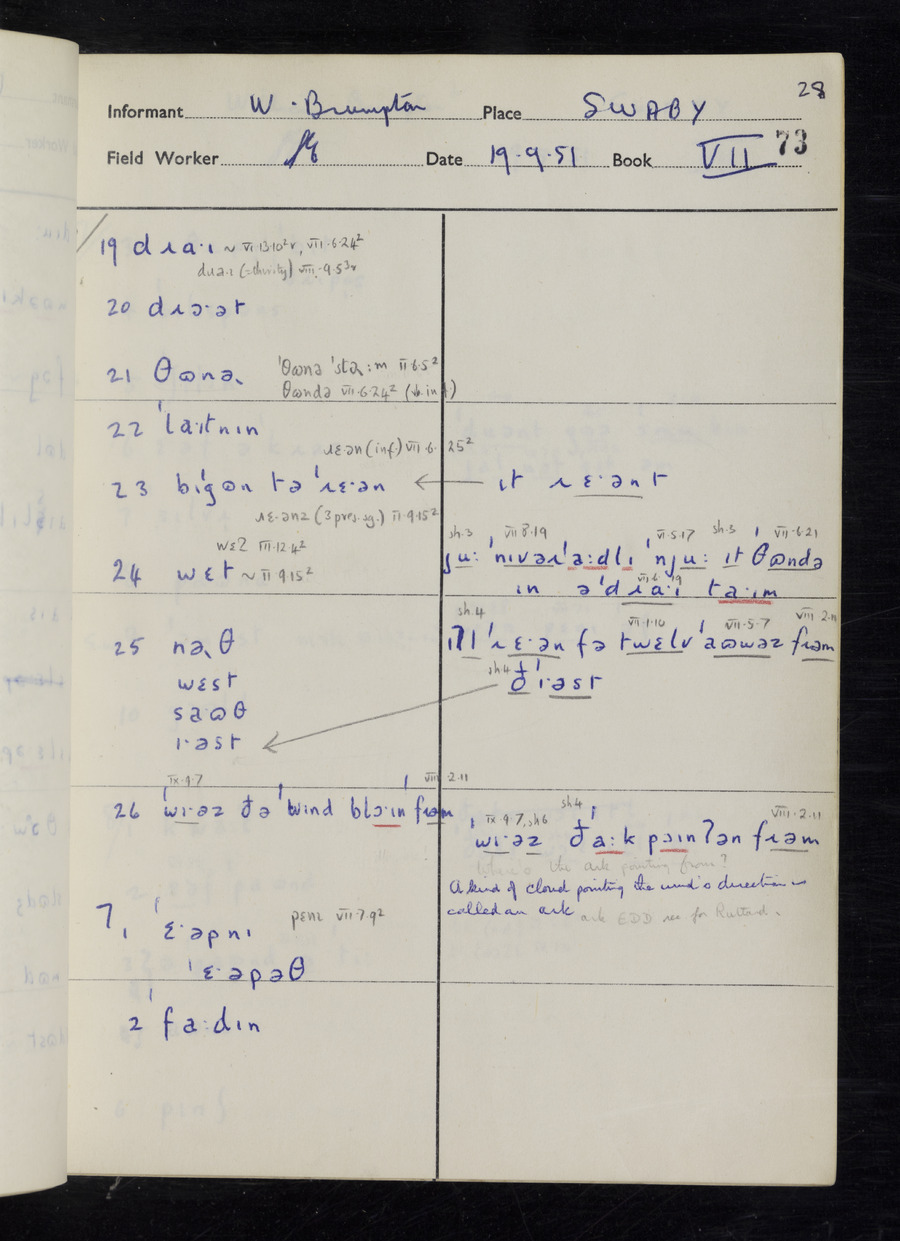 28
Informant W. Brumpton Place SWABY
Field Worker Date 19.9.51 Book VII 73
19 dɹaˑɪ ~ VI.13.10²r, VII.6.24²
dɹaˑɪ (=thirsty) VIII.9.5³r
20 dɹɔˑət
21 θɷnə˞ ˈθɷnə ˈstɑːm II.6.5²
θɷndə VII.6.24² (vb. inf.)
22 ˈlaˑɪtnɪn
ɹɛˑən (inf.) VII.6.25²
23 bɪˈgɷn tə ˈɹɛˑən ← ɪt ɹɛˑənt
ɹɛˑənz (3 pres. sg.) II.9.15²
wɛʔ III.12.4²
24 wɛt ~ II.9.15²
sh.3 VII.8.19 VI.5.17 sh.3 VII.6.21
juː ˈnɪvəɹˈaːdlɪ ˈnjuː ɪt ˈθɷndə
VII.6.19
ɪn əˈdɹaˑɪ taˑɪm
sh.4 VII.1.10 VII.5.7 VIII.2.11
ɪtl ˈɹɛˑən fə twɛlv ˈaɷwəz fɹəm
sh.4
ðˈɪˑəst
25 nə˞θ
wɛst
saɷθ
ɪˑəst
IX.9.7 VIII.2.11
26 ˈwɪˑəz ðə ˈwɪnd ˈblɔˑɪn fɹəm
IX.9.7, sh6 sh4 VIII.2.11
ˈwɪˑəz ðˈaːk pɔɪnʔən fɹəm
Where's the ark pointing from?
A kind of cloud pointing the wind's direction is
called an ark ark EDD rec for Rutland.
7, 1 ˈɛˑəpnɪ pɛnɪ VII.7.9²
ˈɛˑəpəθ
2 ˈfaːdɪn